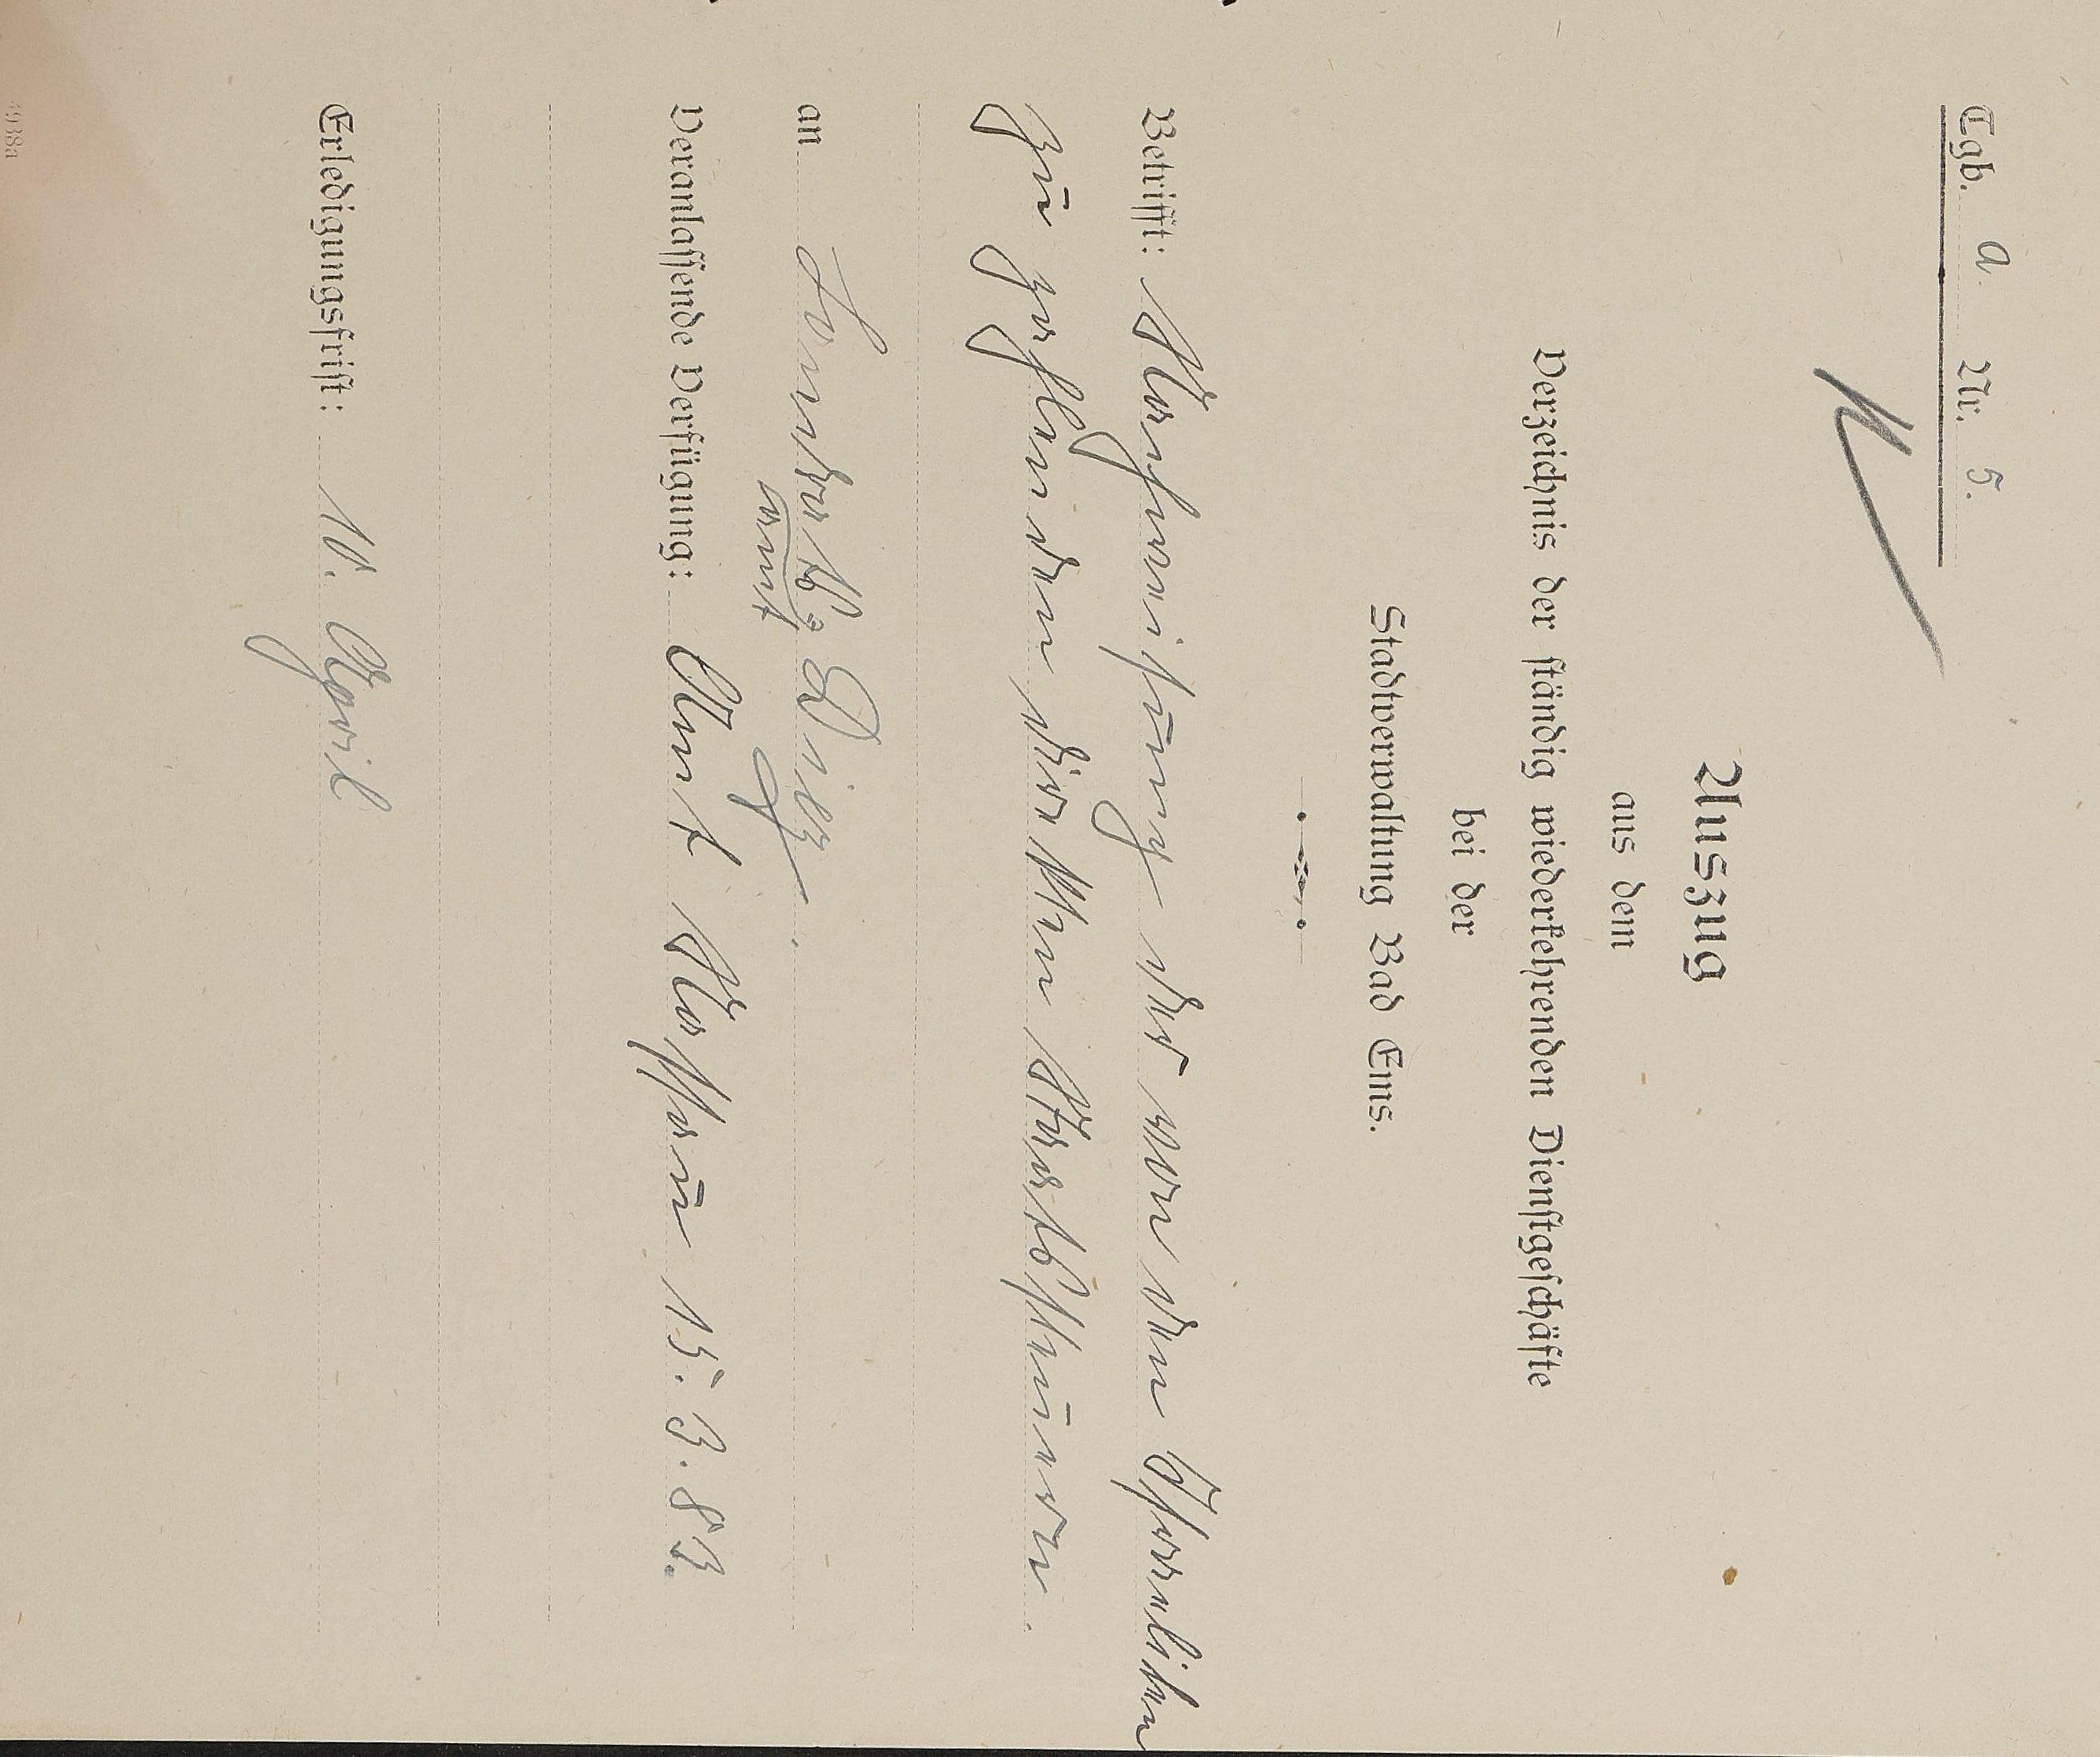 Tgb. A. Nr. 5.
Auszug
aus dem
Verzeichnis der ständig wiederkehrenden Dienstgeschäfte
bei der
Stadtverwaltung Bad Ems.
Betrifft: Nachweisung der von den Israeliten
zu zahlenden direkten Staatssteuern.
an Landrats Diez.
amt
Veranlassende Verfügung: Amt Nassau 15. 3. 83.
Erledigungsfrist: 10. April